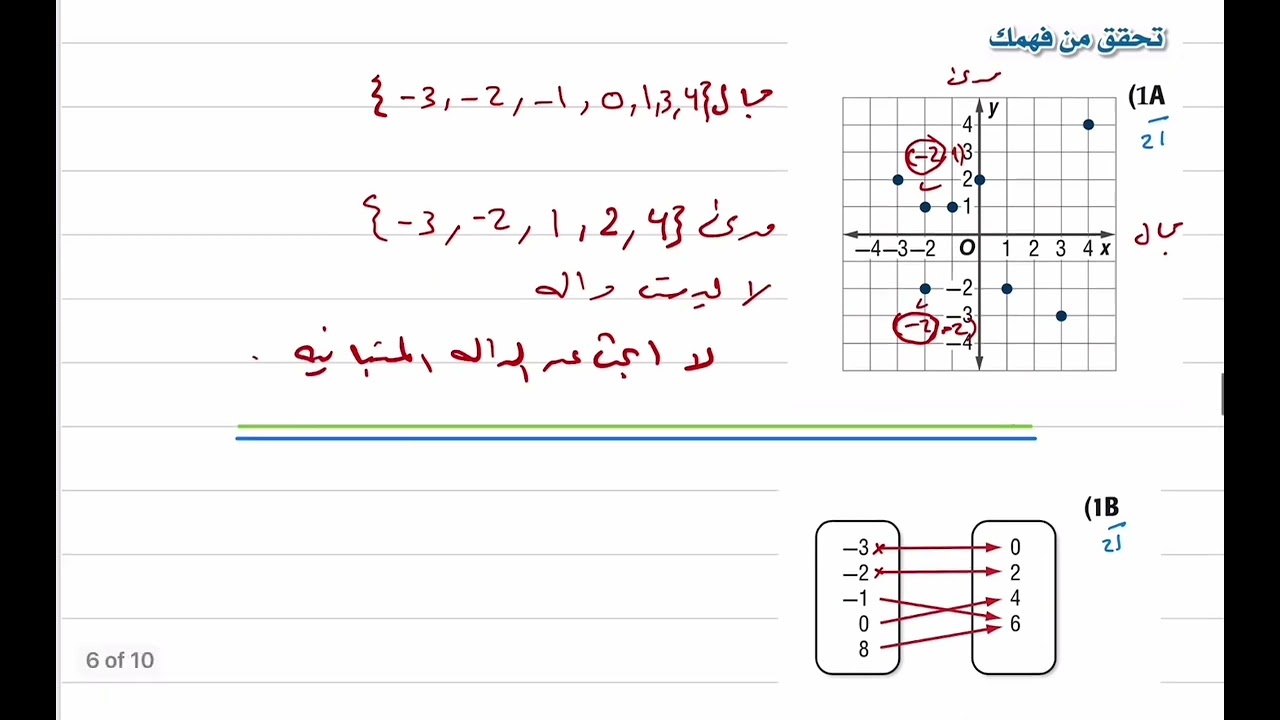 تحقق من فهمك
(1A
21
مدى
مجال
y
4
3
2
1
−4 −3 −2 O 1 2 3 4 x
−2
−3
−4
(−2, 1)
(−2, −2)
مجال {−3, −2, −1, 0, 1, 3, 4}
مدى {−3, −2, 1, 2, 4}
لا ليست داله
لا ابحث عن الداله المتباينه .
(1B
21
−3 0
−2 2
−1 4
0 6
8
6 of 10